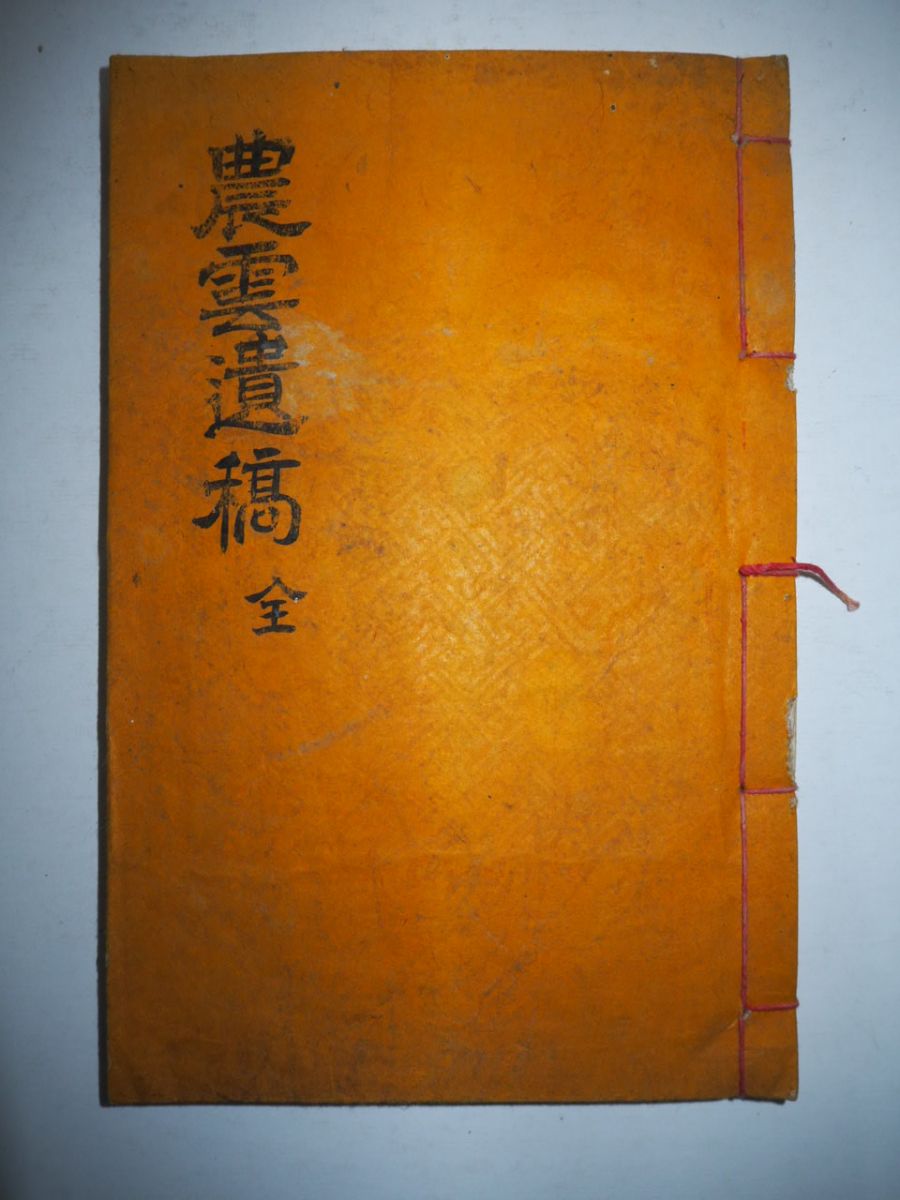 農雲遺稿 全